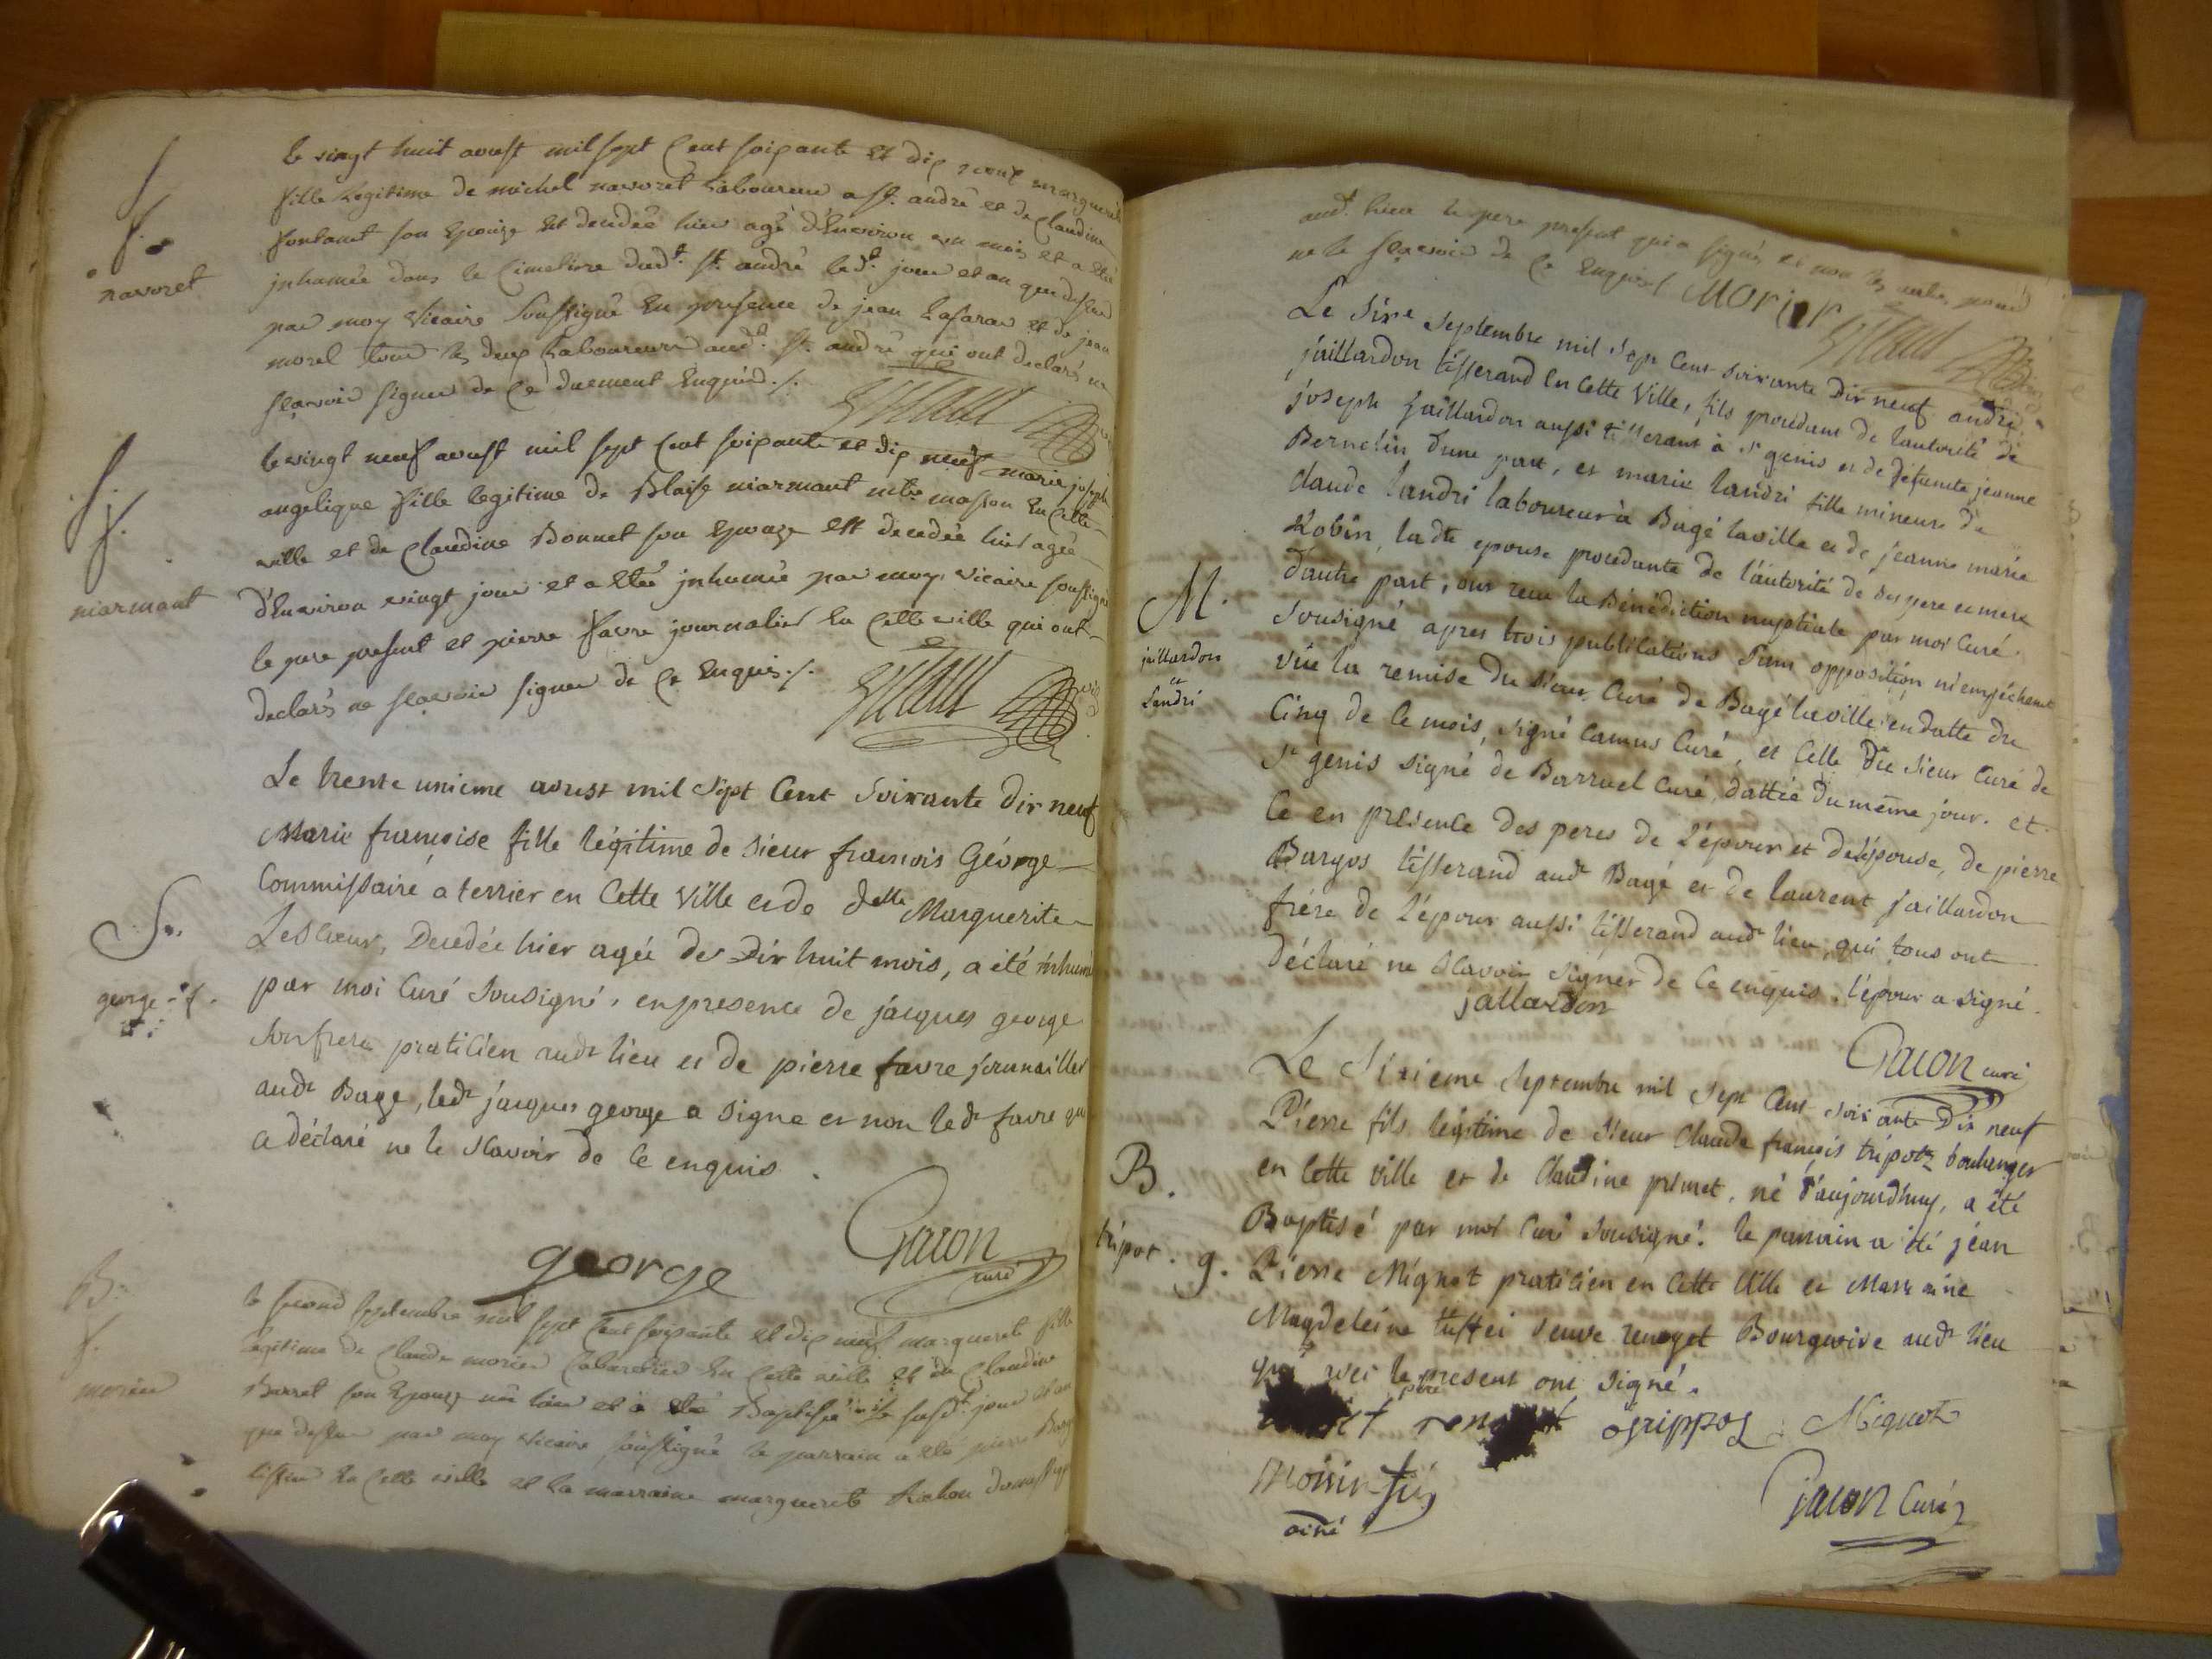 le vingt huit aoust mil sept cent soixante et dix neuf marguerite
fille legitime de michel navoret Laboureur a st. andré et de claudine
fontanet son epouze est decedée hier agé d'environ un mois et a été
inhumée dans le cimetiere dudt. st. andré ledt. jour et an que dessus
par moy vicaire soussigné en presence de jean et de jean
morel tous les deux Laboureurs audt. st. andré qui ont declarés ne
sçavoir signer de ce duement enquis ./.
f.
navoret
le vingt neuf aoust mil sept cent soixante et dix neuf marie joseph
angelique fille legitime de Blaise niarmant mtre masson en cette
ville et de claudine Bonnet son epouze est decedée hier agée
d'environ vingt jour et a étée inhumée par moy vicaire soussigné
le pere present et pierre favre journalier en cette ville qui ont
declarés ne sçavoir signer de ce enquis ./.
f.
niarmant
Le trente unieme aoust mil sept Cent soixante dix neuf
Marie françoise fille légitime de sieur francois Géorge
Commissaire a terrier en Cette Ville et de delle Marguerite
Lescœur, Decedée hier agée de Dix huit mois, a été inhumé
par moi Curé sousigné, en presence de jacques george
son frere praticien audt lieu et de pierre favre journallier
audt Bagé, ledt jacques george a signé et non ledt favre qui
a déclaré ne le scavoir de ce enquis.
S.
george - f.
Gacon
curé
george
le second septembre mil sept cent soixante et dix neuf marguerite fille
legitime de claude morier cabaretier en cette ville et de claudine
Barret son epouze née hier et a été Baptisé le susdt. jour et an
que dessus par moy vicaire soussigné le parrain a été pierre
en cette ville et la marraine marguerite domestique
B.
f.
morier
audt. lieu le pere present qui a signé et non les autres pour
ne le sçavoir de ce enquis / Morier
Le Sixe septembre mil sept Cent soixante Dix neuf andré
jaillardon tisserand en Cette Ville, fils procedant de lautorité de
joseph jaillardon aussi tisserant à st genis et de defunte jeanne
Bernelin d'une part, et marie landri fille mineure de
claude landri laboureur à Bagé laville et de jeanne marie
Robin, ladte epouse procedante de l'autorité de ses pere et mere
d'autre part, ont recu la Bénédiction nuptiale par moi Curé
Sousigné apres trois publications sans opposition ni empéchement
vüe la remise du sieur Curé de Bagé laville en datte du
Cinq de ce mois, signé Camus Curé, et Celle du sieur Curé de
st genis signé de Barruel Curé, dattée du même jour. et
Ce en presence des peres de l'époux et de l'épouse, de pierre
Burgos tisserand audt Bagé et de laurent jaillardon
frére de l'époux aussi tisserand audt lieu, qui tous ont
déclaré ne scavoir signer de ce enquis. l'époux a signé.
M.
jaillardon
et
Landri
jallardon
Gacon curé
Le Sixieme Septembre mil sept Cent soixante Dix neuf
Pierre fils légitime de sieur Claude françois tripoz boulanger
en Cette Ville et de Claudine primet, né d'aujourdhuy, a été
Baptisé par moi Curé sousigné. le parrain a été jéan
Pierre Mignot praticien en Cette Ville et Marraine
Magdeleine veuve renoyet Bourgeoise audt lieu
qui avec le pere present ont signé.
B.
tripot. g.
Mignot
aîné
Gacon Curé